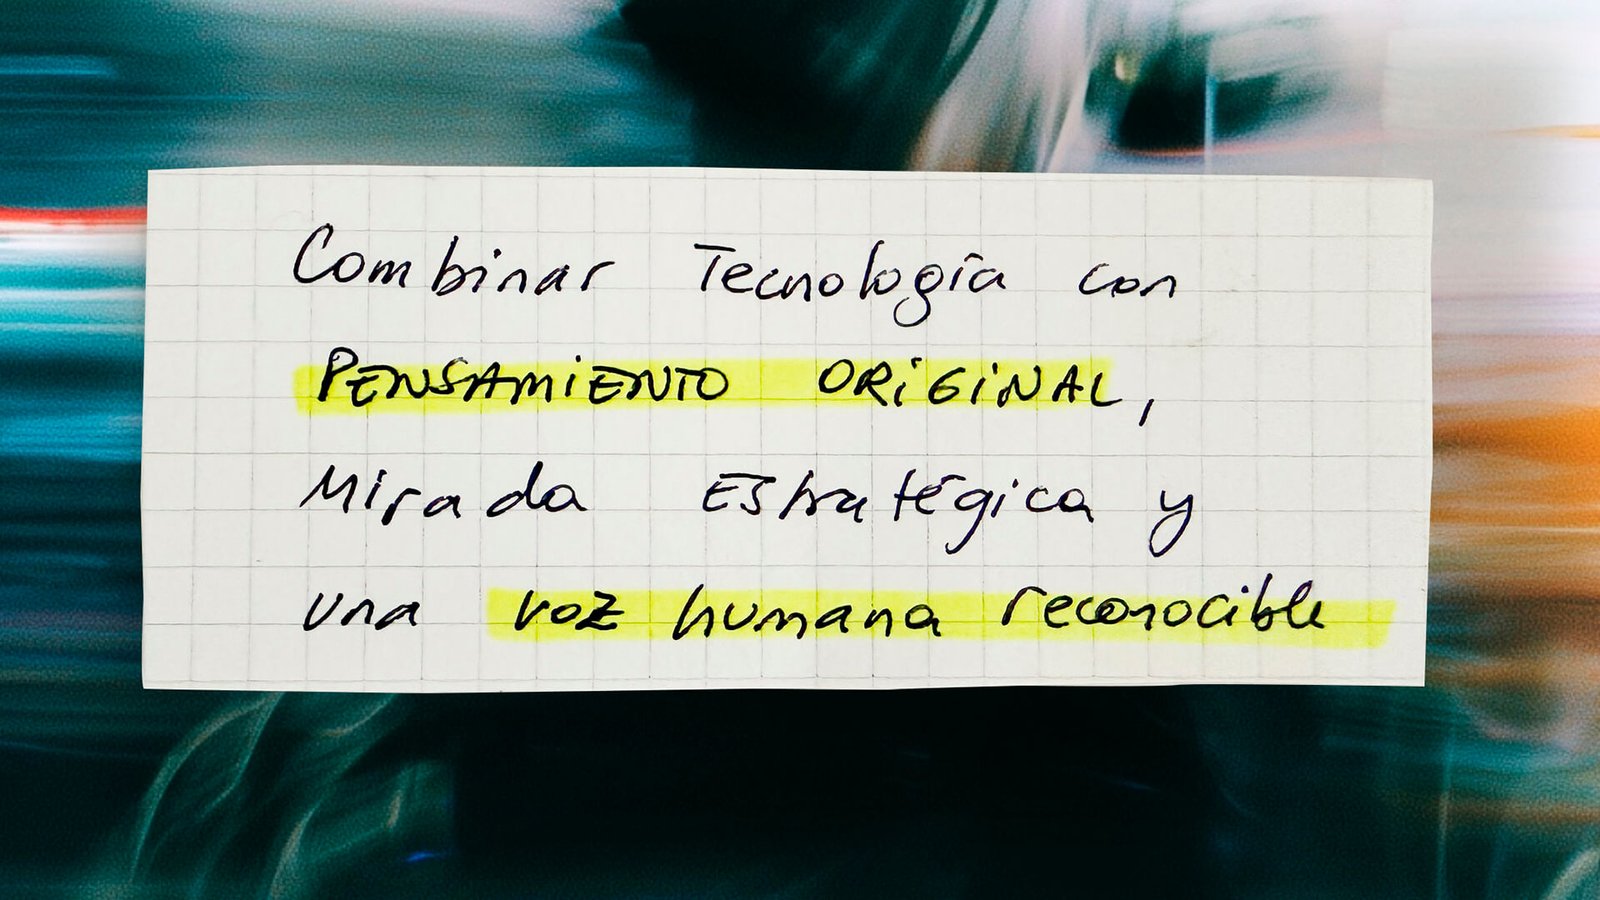 Combinar Tecnología con
PENSAMIENTO ORIGINAL,
Mirada Estratégica y
una voz humana reconocible